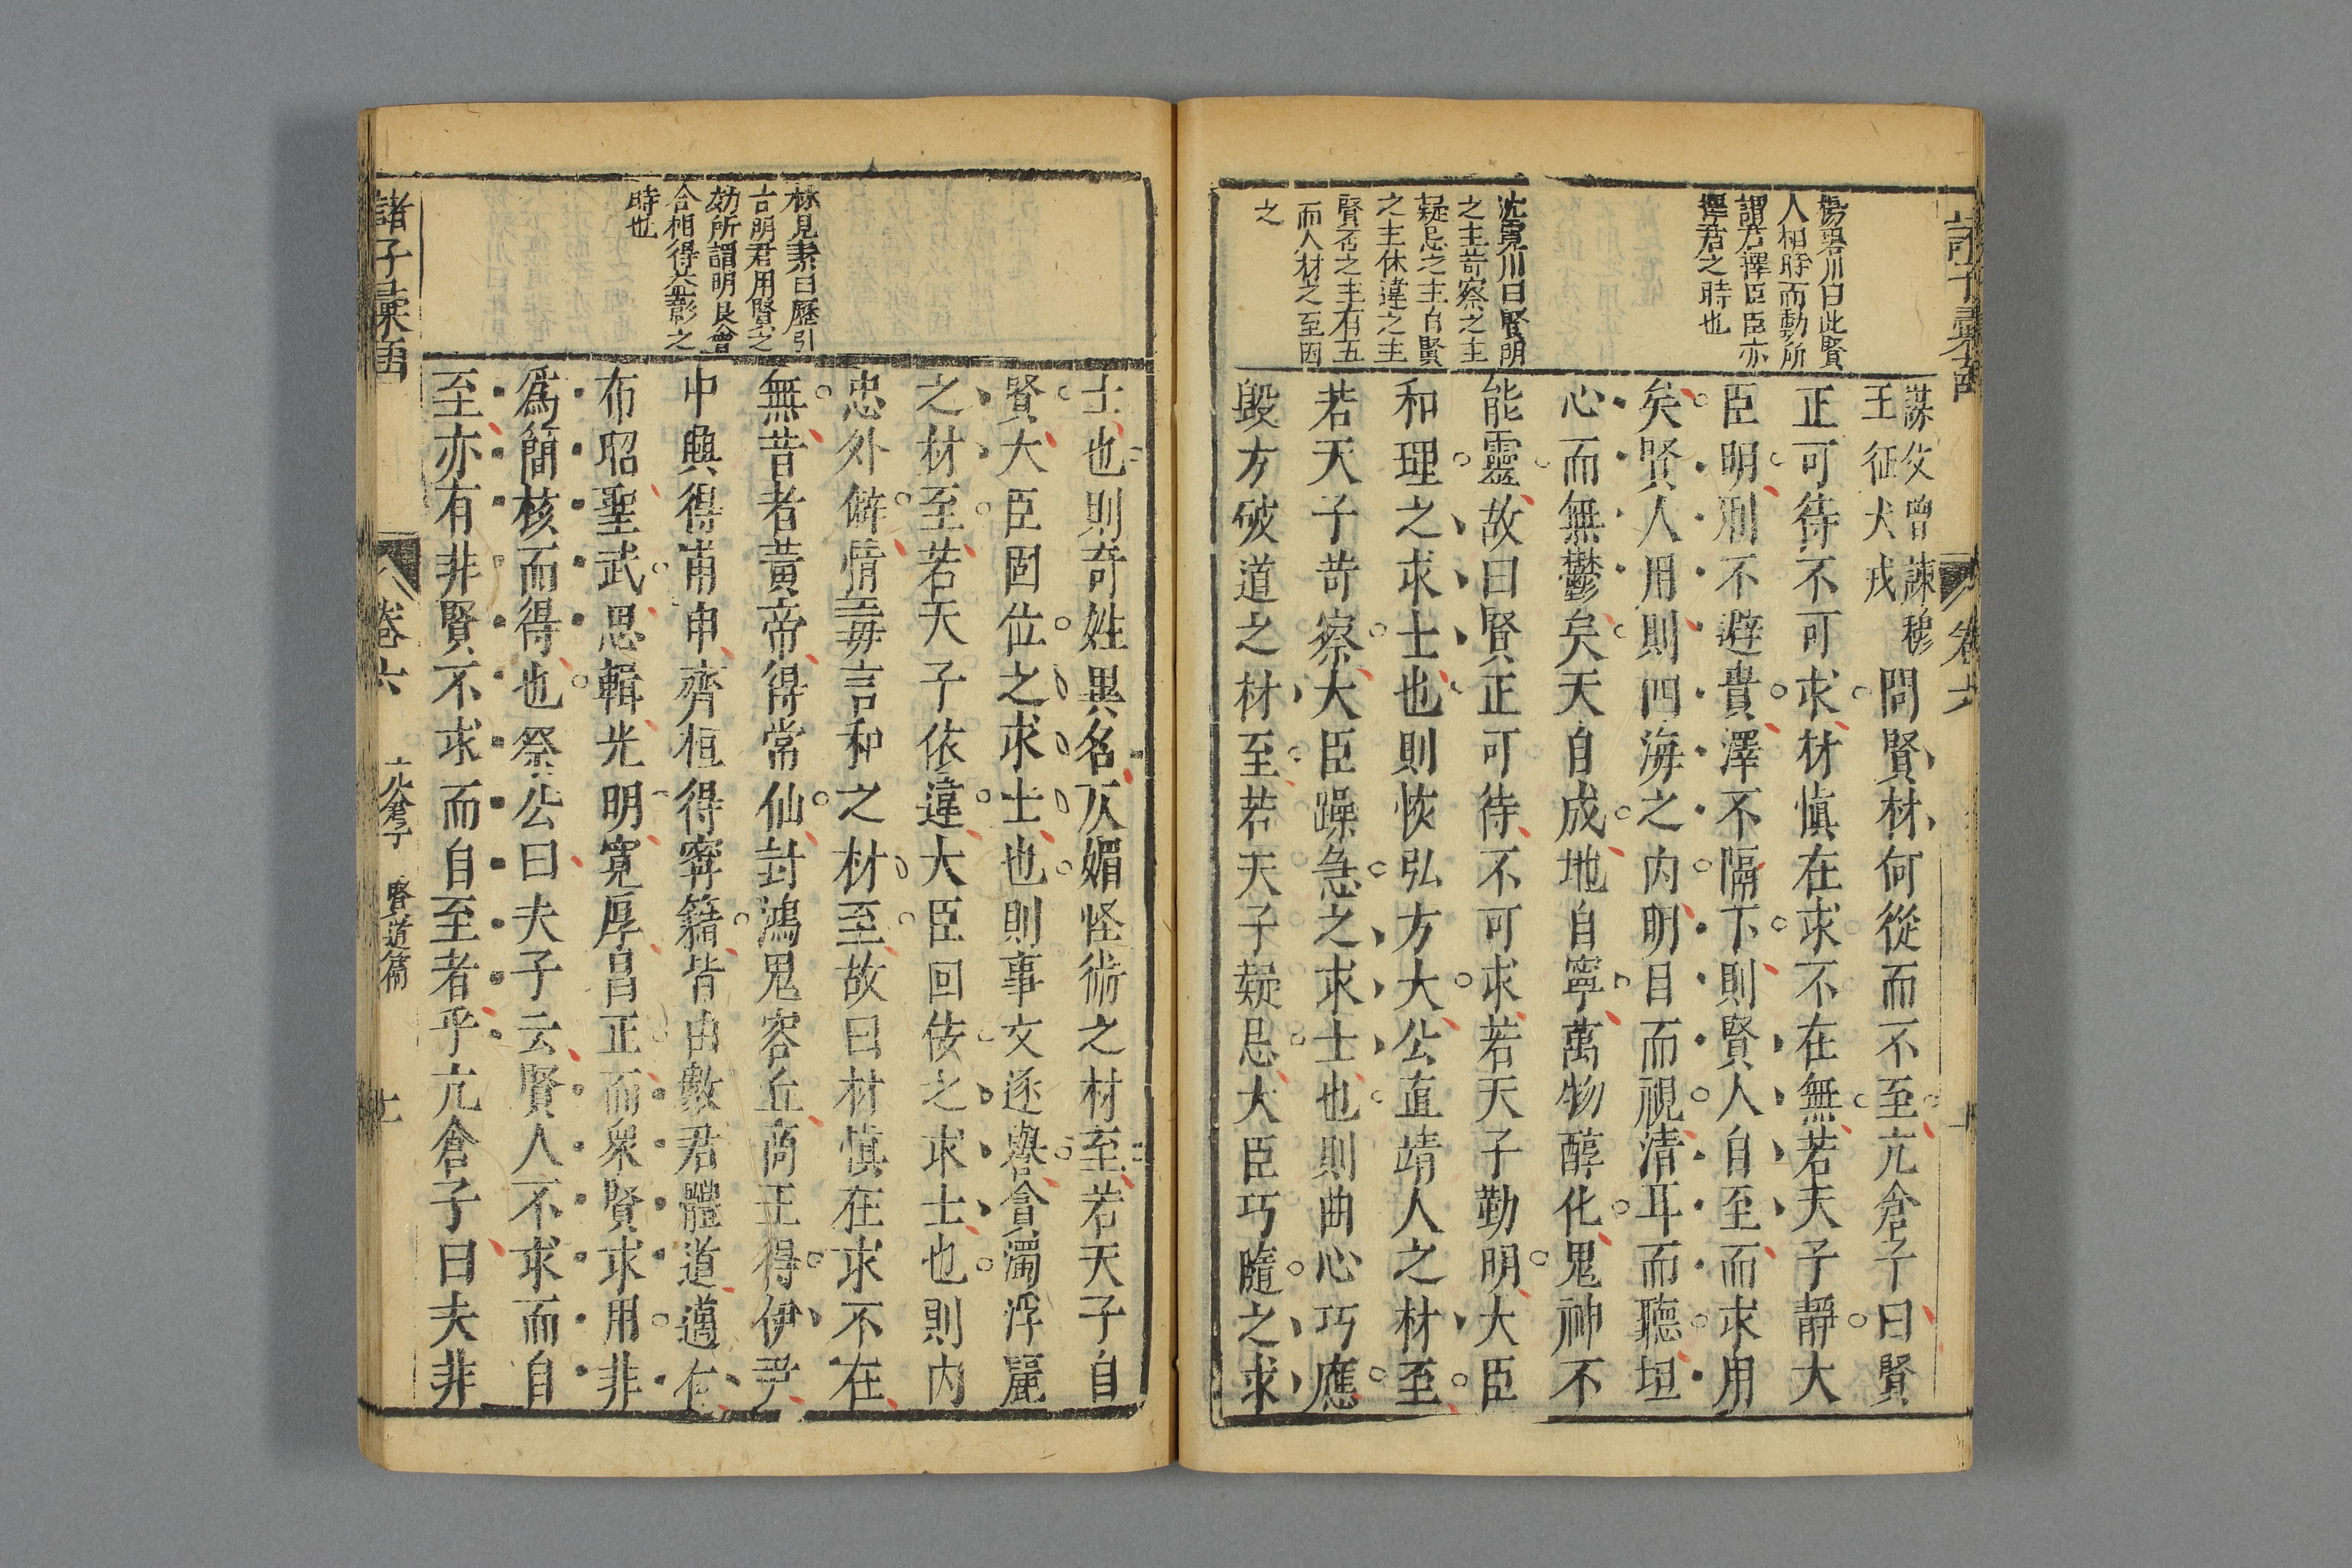 楊碧川曰此賢
人相時而動所
謂君擇臣臣亦
擇君之時也
沈霓川曰賢明
之主苛察之主
疑忌之主自賢
之主休違之主
賢否之主有五
而人材之至因
之
謀父曾諫穆
王征犬戎
問賢材何從而不至亢倉子曰賢
正可待不可求材慎在求不在無若天子靜大
臣明刑不避貴澤不隔下則賢人自至而求用
矣賢人用則四海之内明目而視清耳而聽坦
心而無鬱矣天自成地自寧萬物醇化鬼神不
能靈故曰賢正可待不可求若天子勤明大臣
和理之求士也則恢弘方大公直靖人之材至
若天子苛察大臣躁急之求士也則曲心巧應
毀方破道之材至若天子疑忌大臣巧隨之求
士也則奇姓異名仄媚怪術之材至若天子自
賢大臣固位之求士也則事文逐譽貪濁浮麗
之材至若天子依違大臣回佞之求士也則内
忠外僻情毒言和之材至故曰材慎在求不在
無昔者黃帝得常仙封鴻鬼容丘商王得伊尹
中興得甫申齊桓得甯籍皆由數君體道邁仁
布昭聖武思輯光明寛厚昌正而衆賢求用非
爲簡核而得也祭公曰夫子云賢人不求而自
至亦有非賢不求而自至者乎亢倉子曰夫非
林見素曰歷引
古明君用賢之
効所謂明良會
合相得益彰之
時也
諸子彙函
卷六
亢倉子
賢道篇